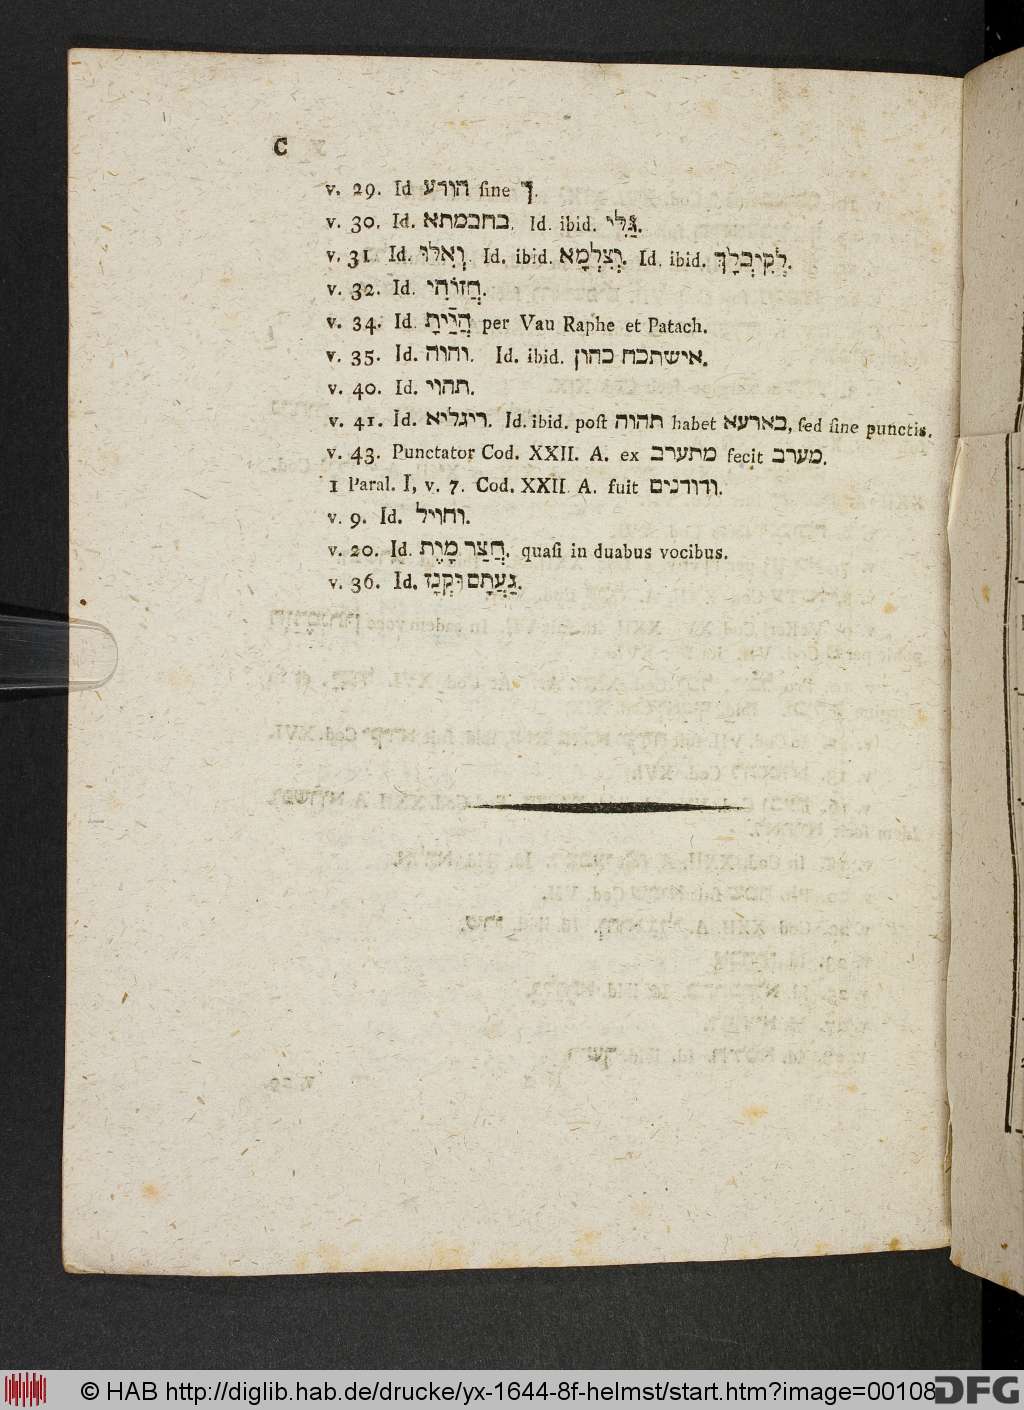 C
v. 29. Id הודע ſine ך.
v. 30. Id. בחבמתא. Id. ibid. גַּלִּי.
v. 31 Id. וְאִלּוּ. Id. ibid. וְצִלְמָא. Id. ibid. לְקִיבְלָךְ.
v. 32. Id. חֲזוֹהִי.
v. 34. Id. הֲוַיְתָ per Vau Raphe et Patach.
v. 35. Id. והוה. Id. ibid. אישתכח כהון.
v. 40. Id. תהוי.
v. 41. Id. ריגליא. Id. ibid. poſt תהוה habet בארעא, ſed ſine punctis.
v. 43. Punctator Cod. XXII. A. ex מתערב fecit מערב.
1 Paral. I, v. 7. Cod. XXII. A. fuit ודודנים.
v. 9. Id. וחויל.
v. 20. Id. חֲצַר מָוֶת. quaſi in duabus vocibus.
v. 36. Id. גַעֲתָם וּקְנָז.
© HAB http://diglib.hab.de/drucke/yx-1644-8f-helmst/start.htm?image=00108
DFG